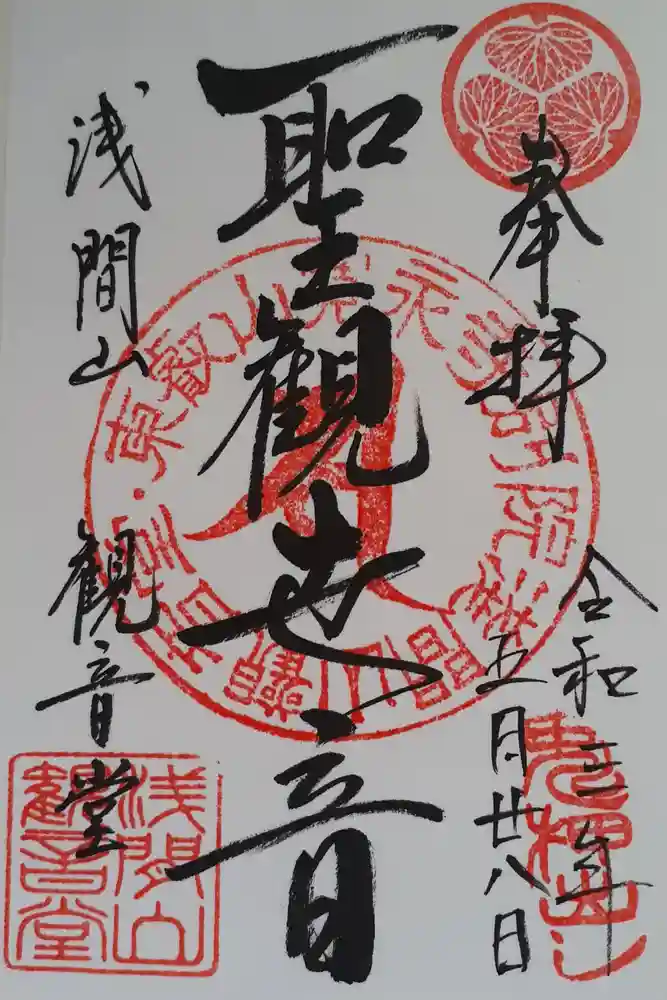 奉拝
令和三年
五月廿八日
聖觀世音
浅間山
観音堂
浅間山
観音堂